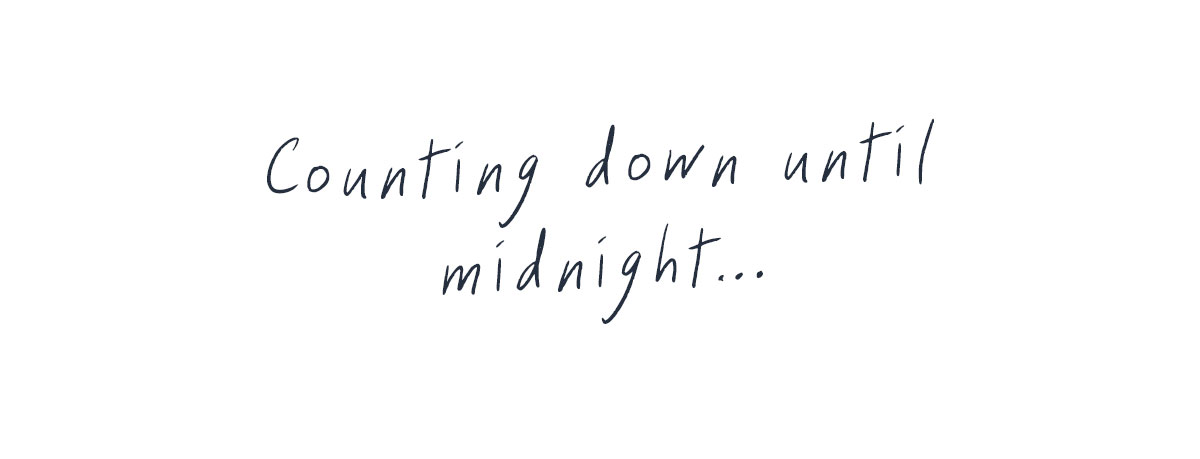 Counting down until
midnight...